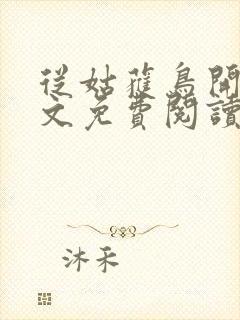 從姑獲鳥開
文免費閱讀
沐禾